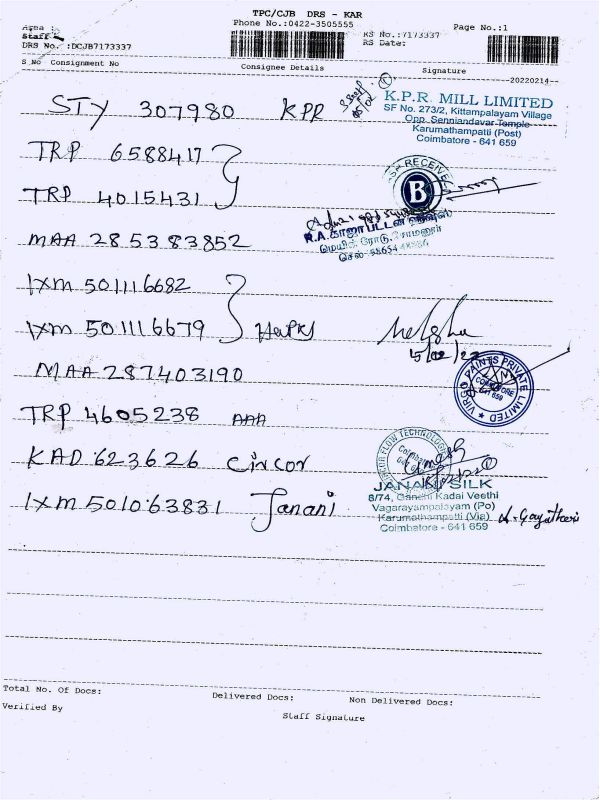 TPC/CJB DRS - KAR
Phone No.:0422-3505555
Page No.:1
Area :
Staff
DRS No. :DCJB7173337
RS No.:7173337
RS Date:
S No Consignment No Consignee Details Signature
20220214
STY 307980 KPR
K.P.R. MILL LIMITED
SF No. 273/2, Kittampalayam Village
Opp. Senniandavar Temple
Karumathampatti (Post)
Coimbatore - 641 659
TRP 6588417
TRP 4015431
RECEIVE
B
MAA 28 53 83852
IXM 501116682
IXM 501116679
15/02/22
MAA 287403190
VIRGO PAINTS PRIVATE LIMITED
COIMBATORE
641 659
TRP 4605238 AAA
KAD 623626 Circor
FLOW TECHNOLOG
IXM 501063831 Janani
JANANI SILK
8/74, Gandhi Kadai Veethi
Vagarayampalayam (Po)
Karumathampatti (Via)
Coimbatore - 641 659
Total No. Of Docs:
Delivered Docs:
Non Delivered Docs:
Verified By
Staff Signature